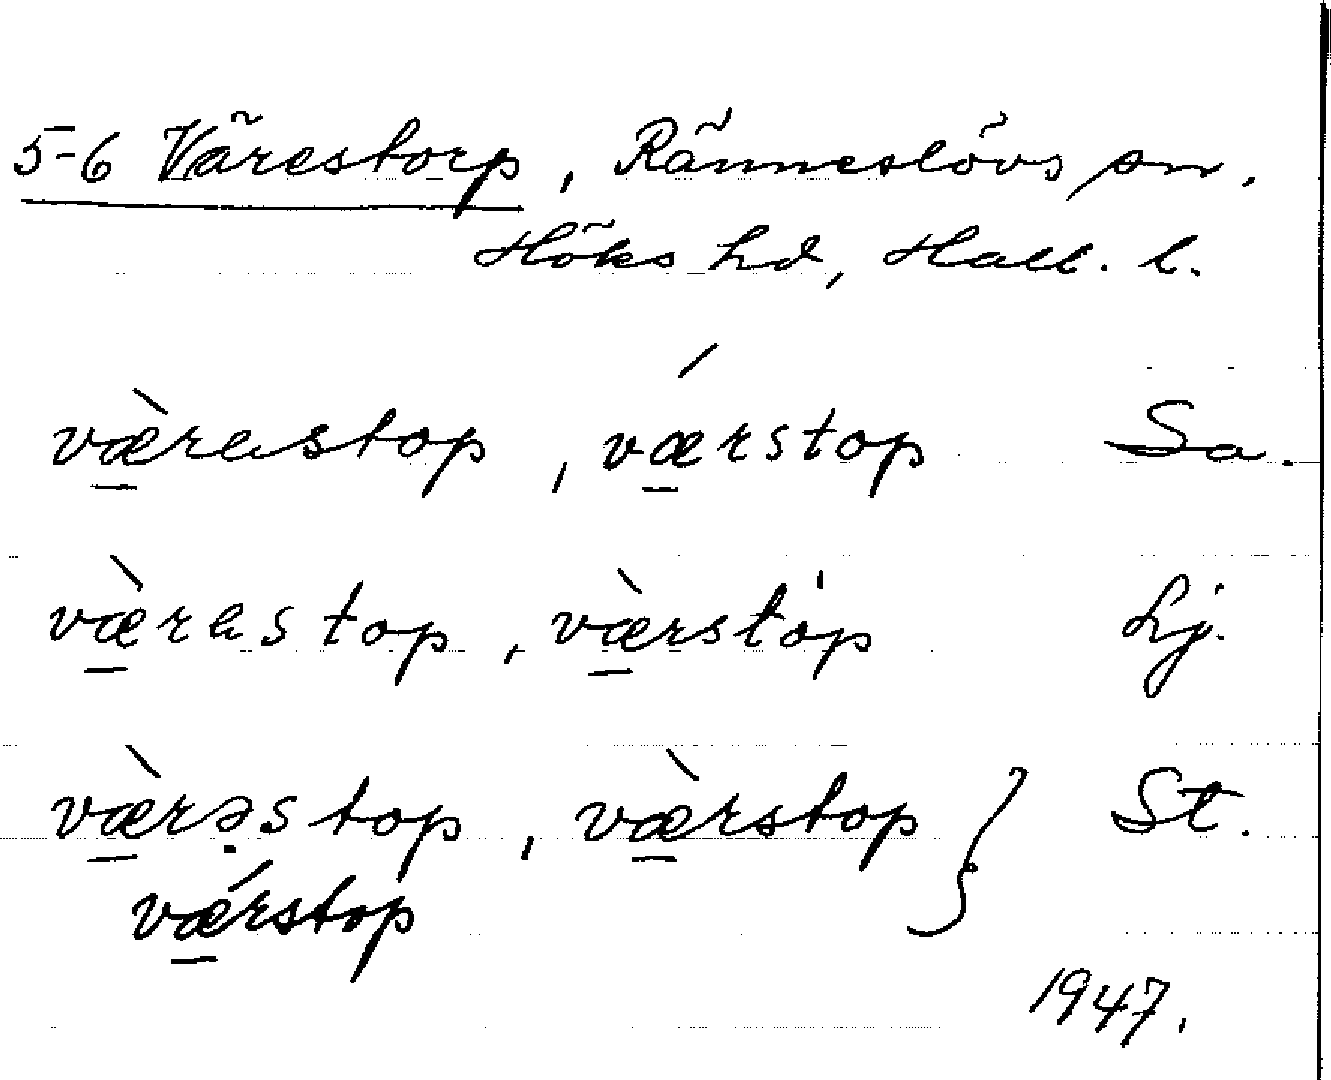 5-6 Värestorp, Ränneslövs sn,
Höks hd, Hall. l.
væ̱̀rastop, vǽ̱rstop Sa.
væ̱̀rastop, væ̱̀rstop Lj.
væ̱̀rəstop, væ̱̀rstop } St.
vǽ̱rstop
1947.